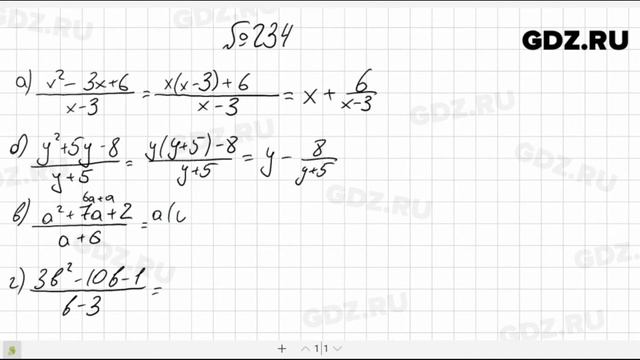 №234
GDZ.RU
а) x² - 3x + 6 / x - 3 = x(x-3) + 6 / x - 3 = x + 6 / x-3
б) y² + 5y - 8 / y + 5 = y(y+5) - 8 / y+5 = y - 8 / y+5
6a+a
в) a² + 7a + 2 / a + 6 = a(
г) 3b² - 10b - 1 / b - 3 =
1\1